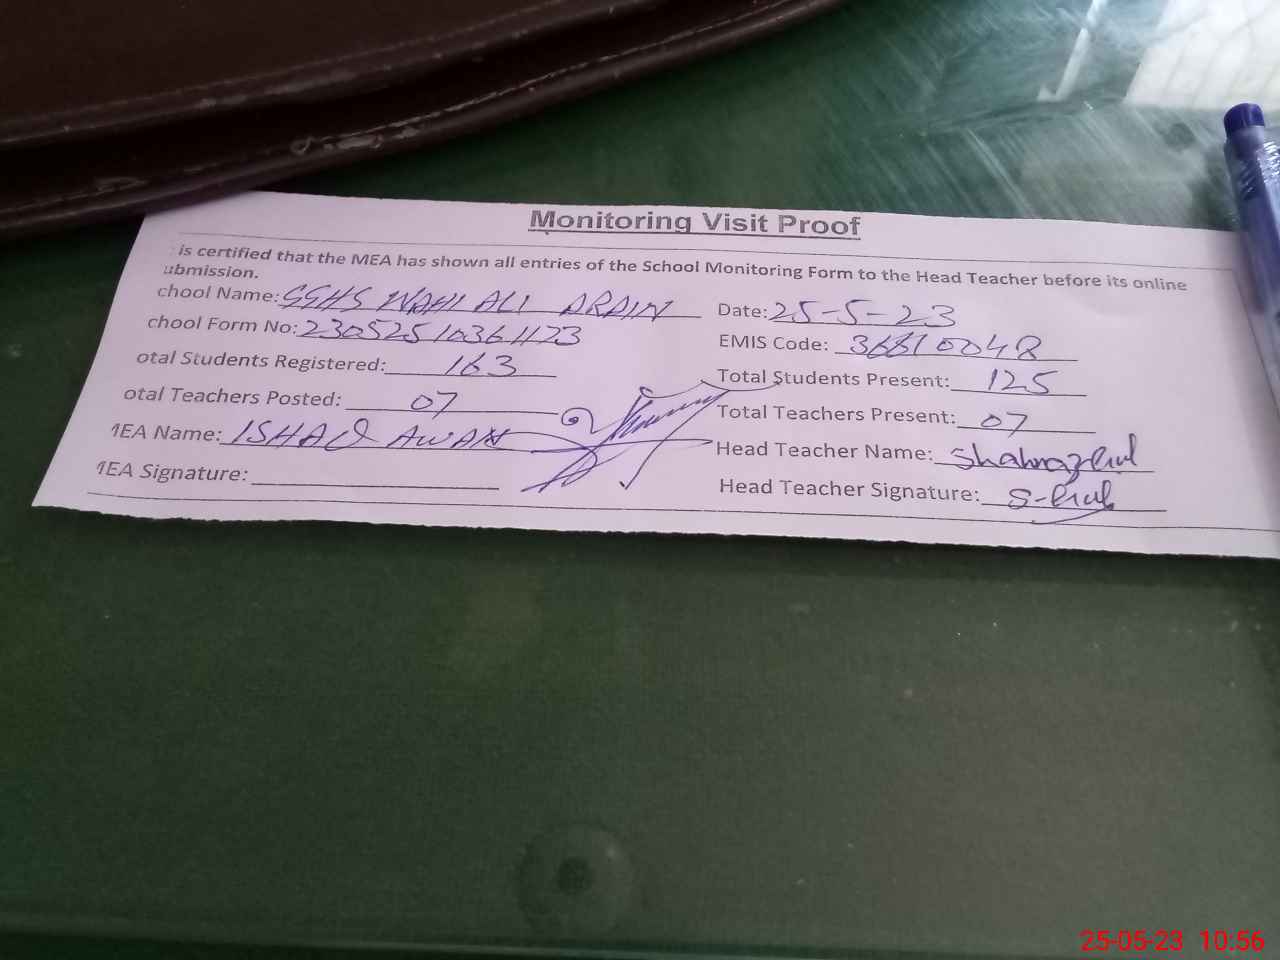 Monitoring Visit Proof
is certified that the MEA has shown all entries of the School Monitoring Form to the Head Teacher before its online
ubmission.
chool Name: GGHS WAHI ALI ARAIN Date: 25-5-23
chool Form No: EMIS Code: 36610048
otal Students Registered: 163 Total Students Present: 125
otal Teachers Posted: 07 Total Teachers Present: 07
MEA Name: ISHAQ AWAN Head Teacher Name:
MEA Signature: Head Teacher Signature:
25-05-23 10:56